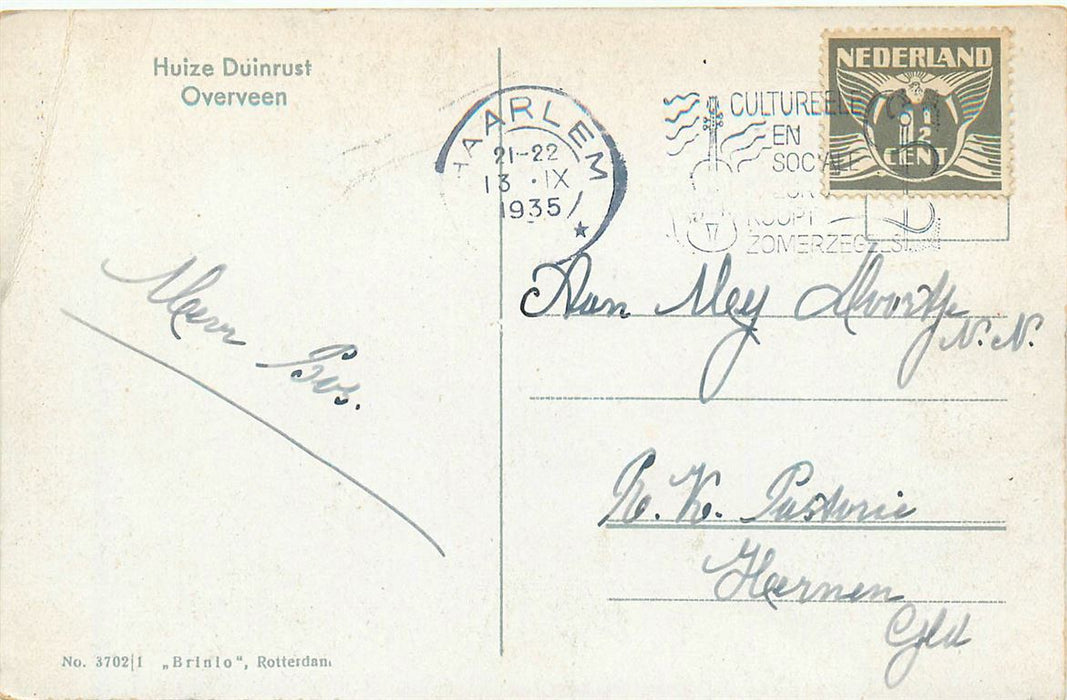 Huize Duinrust
Overveen
HAARLEM
21-22
13 · IX
1935
CULTUREELE
EN
SOCIALE
KOOPT
ZOMERZEGELS
NEDERLAND
1½
CENT
Bos.
Aan Mej
N. N.
R. K. Pastorie
Hernen
Gld
No. 3702|1 „Brinio", Rotterdam